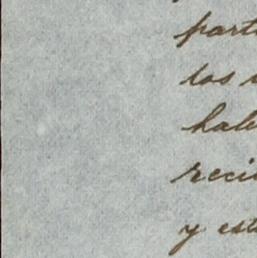 part
los
hab
reci
y est